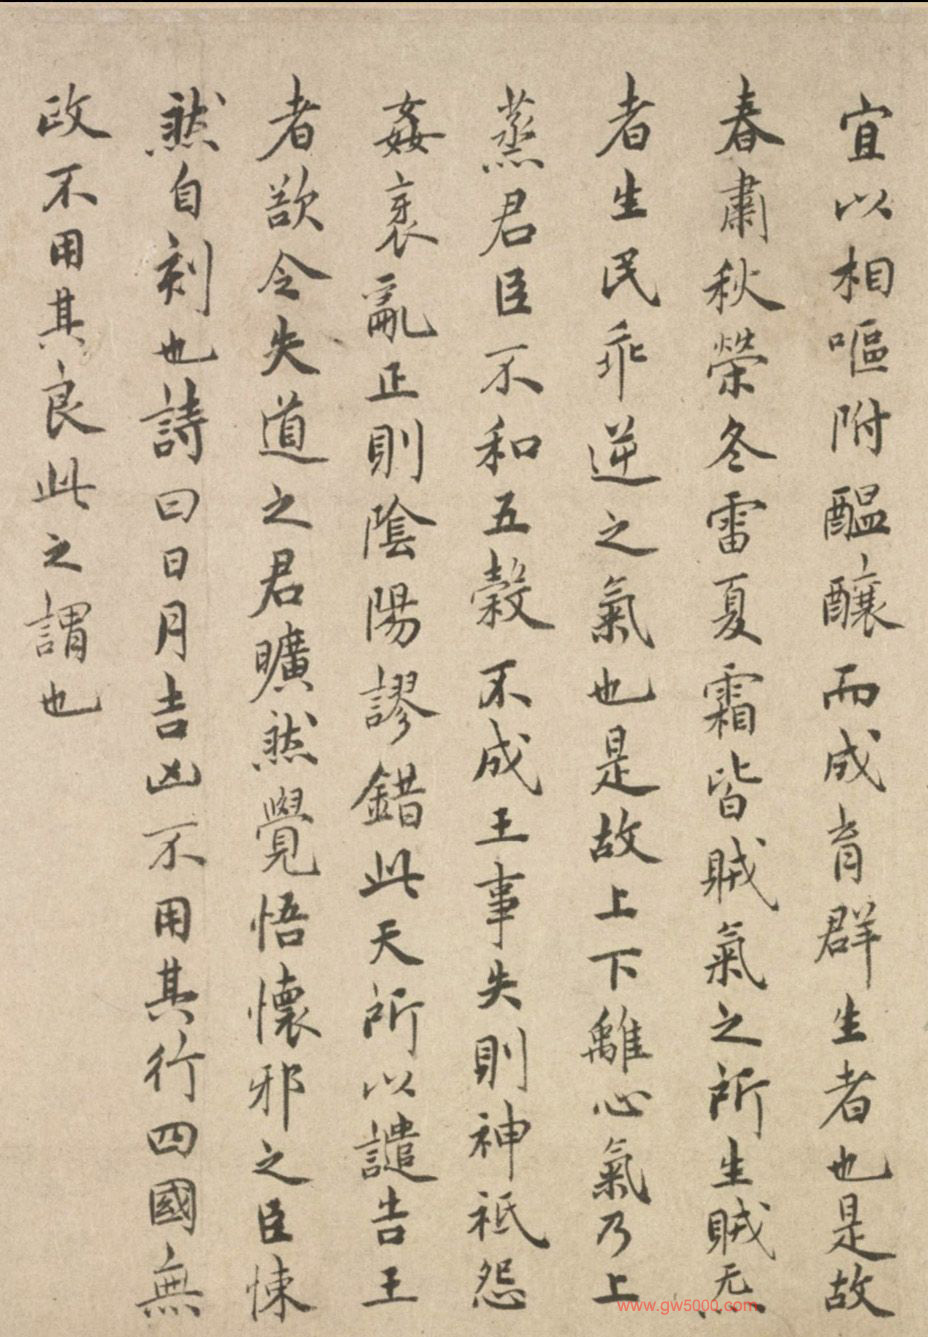 宜以相嘔附醖釀而成育群生者也是故
春肅秋榮冬雷夏霜皆賊氣之所生賊炁
者生民乖逆之氣也是故上下離心氣乃上
蒸君臣不和五穀不成王事失則神祇怨
姦衺亂正則陰陽謬錯此天所以譴告王
者欲令失道之君曠然覺悟懷邪之臣悚
然自刻也詩曰日月告凶不用其行四國無
政不用其良此之謂也
www.gw5000.com